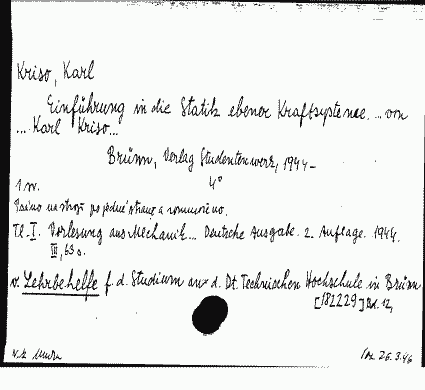 Kriso, Karl
Einführung in die Statik ebener Kraftsysteme. ... von
... Karl Kriso...
Brünn, Verlag Studentenwerk, 1944-
4°
1 sv.
Psáno na stroji po jedné straně a rozmnoženo.
Tl. I. Vorlesung aus Mechanik... Deutsche Ausgabe. 2. Auflage. 1944.
III, 63 s.
v. Lehrbehelfe f. d. Studium an d. Dt. Technischen Hochschule in Brünn
[182229] Bd. 12,
26.3.46